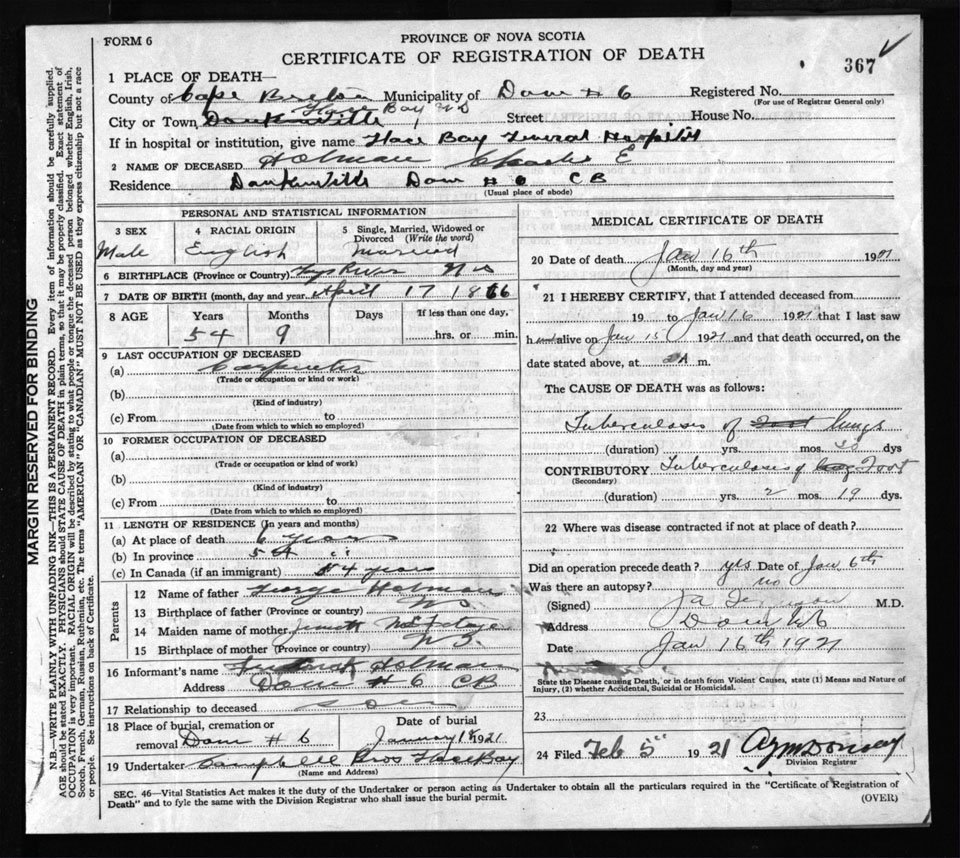 FORM 6
PROVINCE OF NOVA SCOTIA
CERTIFICATE OF REGISTRATION OF DEATH
367
1 PLACE OF DEATH—
County of Cape Breton Municipality of Dom # 6 Registered No.
(For use of Registrar General only)
City or Town Glace Bay NS Street House No.
If in hospital or institution, give name Glace Bay General Hospital
2 NAME OF DECEASED Holman Charles E
Residence Dom # 6 CB
(Usual place of abode)
PERSONAL AND STATISTICAL INFORMATION
3 SEX Male
4 RACIAL ORIGIN English
5 Single, Married, Widowed or Divorced (Write the word) Married
6 BIRTHPLACE (Province or Country) N S
7 DATE OF BIRTH (month, day and year) April 17 1866
8 AGE Years Months Days If less than one day,
54 9 hrs. or min.
9 LAST OCCUPATION OF DECEASED
(a) Carpenter
(Trade or occupation or kind or work)
(b)
(Kind of industry)
(c) From to
(Date from which to which so employed)
10 FORMER OCCUPATION OF DECEASED
(a)
(Trade or occupation or kind of work)
(b)
(Kind of industry)
(c) From to
(Date from which to which so employed)
11 LENGTH OF RESIDENCE (In years and months)
(a) At place of death 6 years
(b) In province 54 "
(c) In Canada (if an immigrant) 54 years
Parents
12 Name of father George Holman
13 Birthplace of father (Province or country) NS
14 Maiden name of mother
15 Birthplace of mother (Province or country) N.S.
16 Informant's name Frederick Holman
Address Dom # 6 CB
17 Relationship to deceased son
18 Place of burial, cremation or removal Dom # 6
Date of burial January 18 1921
19 Undertaker Campbell Bros Glace Bay
(Name and Address)
MEDICAL CERTIFICATE OF DEATH
20 Date of death Jan 16th 1921
(Month, day and year)
21 I HEREBY CERTIFY, that I attended deceased from
19 to Jan 16 1921 that I last saw
h alive on Jan 15 1921 and that death occurred, on the
date stated above, at 2 A m.
The CAUSE OF DEATH was as follows:
Tuberculosis of Foot lungs
(duration) yrs. mos. 20 dys
CONTRIBUTORY Tuberculosis of Foot
(Secondary)
(duration) yrs. 2 mos. 19 dys.
22 Where was disease contracted if not at place of death?
Did an operation precede death? yes Date of Jan 6th
Was there an autopsy? no
(Signed) M.D.
Address Dom No 6
Date Jan 16th 1921
State the Disease causing Death, or in death from Violent Causes, state (1) Means and Nature of
Injury, (2) whether Accidental, Suicidal or Homicidal.
23
24 Filed Feb 5 1921
Division Registrar
SEC. 46—Vital Statistics Act makes it the duty of the Undertaker or person acting as Undertaker to obtain all the particulars required in the "Certificate of Registration of
Death" and to fyle the same with the Division Registrar who shall issue the burial permit.
(OVER)
MARGIN RESERVED FOR BINDING
N.B.—WRITE PLAINLY WITH UNFADING INK—THIS IS A PERMANENT RECORD. Every item of information should be carefully supplied.
AGE should be stated EXACTLY. PHYSICIANS should STATE CAUSE OF DEATH in plain terms, so that it may be properly classified. Exact statement of
OCCUPATION is very important. RACIAL ORIGIN will be described by stating to what people or tongue the deceased person belonged whether English, Irish,
Scotch, French, German, Russian, Ruthenian, etc. The terms "AMERICAN" OR "CANADIAN" MUST NOT BE USED as they express citizenship but not a race
or people. See instructions on back of Certificate.